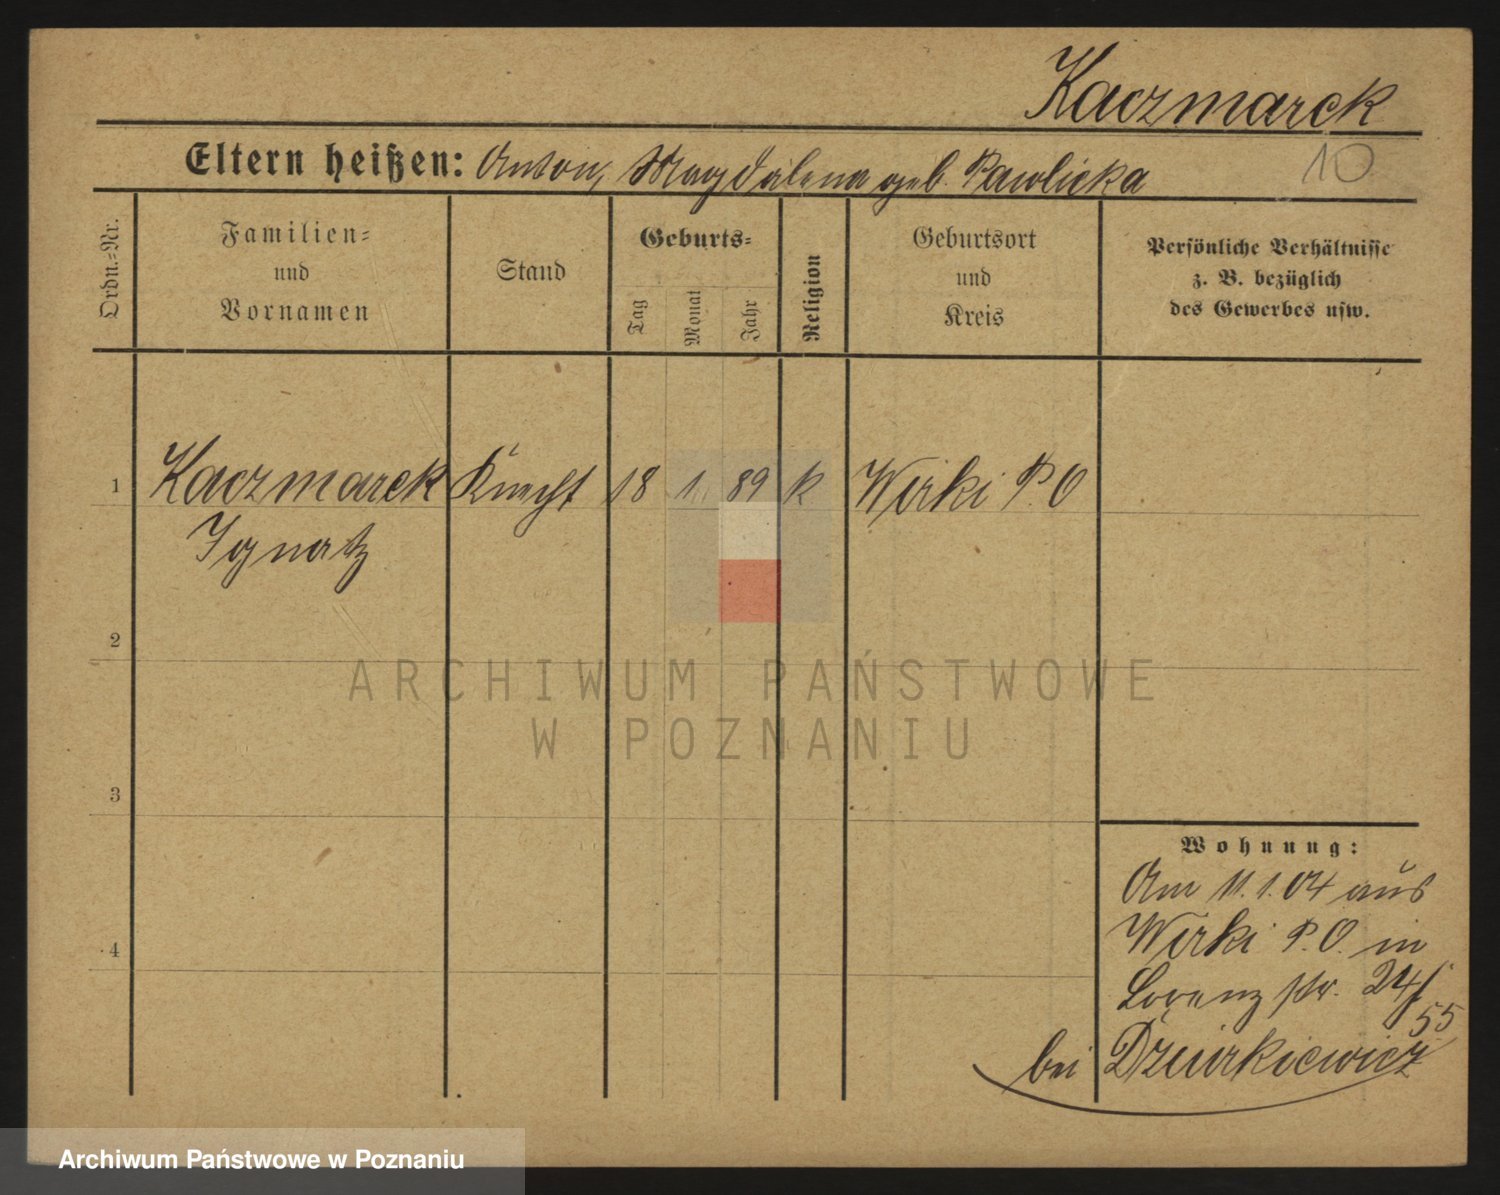 Kaczmarek
Eltern heißen: Anton, Magdalena geb. Pawlicka
10
Ordn.=Nr.
Familien=
und
Vornamen
Stand
Geburts=
Tag
Monat
Jahr
Religion
Geburtsort
und
Kreis
Persönliche Verhältnisse
z. B. bezüglich
des Gewerbes usw.
1 Kaczmarek Knecht 18 1. 89 k Wirki P. O
Ignatz
2
3
4
ARCHIWUM PAŃSTWOWE
W POZNANIU
Wohnung:
Am 11.1.04 aus
Wirki P.O. in
Lorenz str. 24/
55
bei Dzwirkiewicz
Archiwum Państwowe w Poznaniu